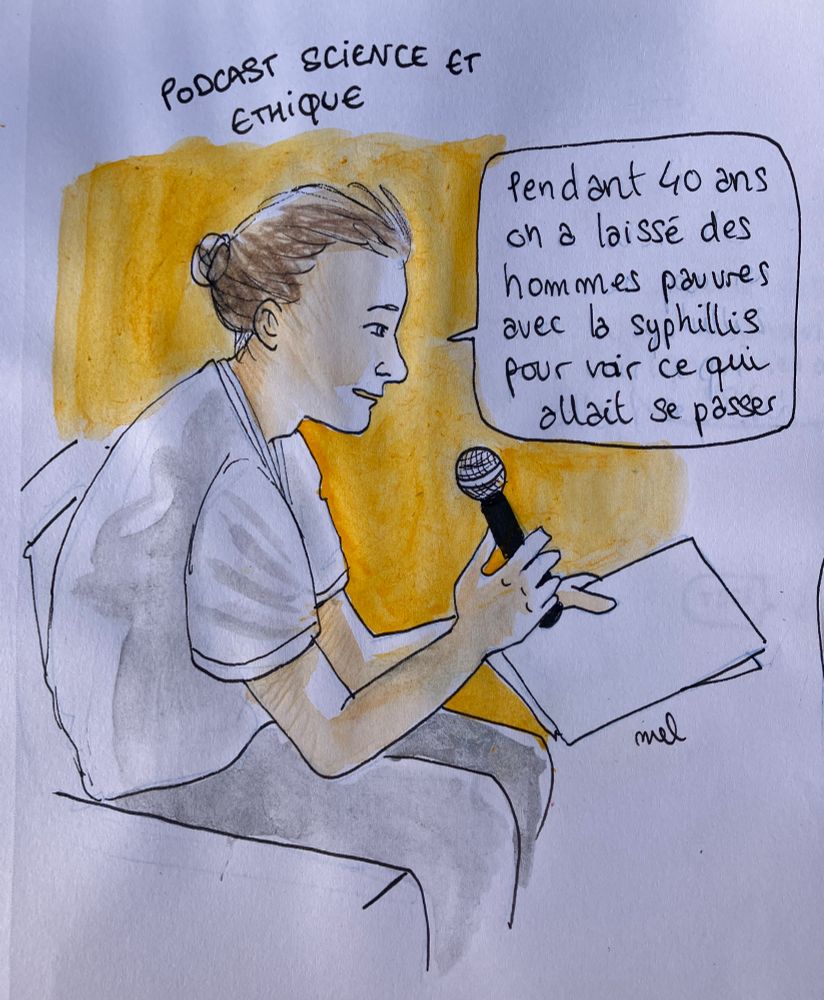 PODCAST SCIENCE ET
ETHIQUE
Pendant 40 ans
on a laissé des
hommes pauvres
avec la syphillis
pour voir ce qui
allait se passer
mel